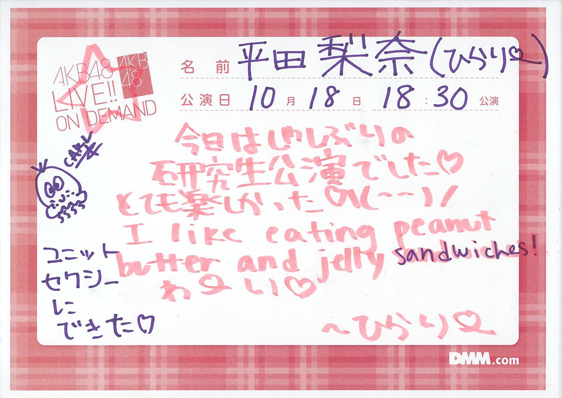 AKB48
LIVE!!
ON DEMAND
AKB
48
名 前 平田 梨奈(ひらり)
公演日 10 月 18 日 18:30 公演
今日はひさしぶりの
研究生公演でした♡
とても楽しかった
I like eating peanut
butter and jelly sandwiches!
わーい♡
〜ひらり
ユニット
セクシー
に
できた♡
DMM.com